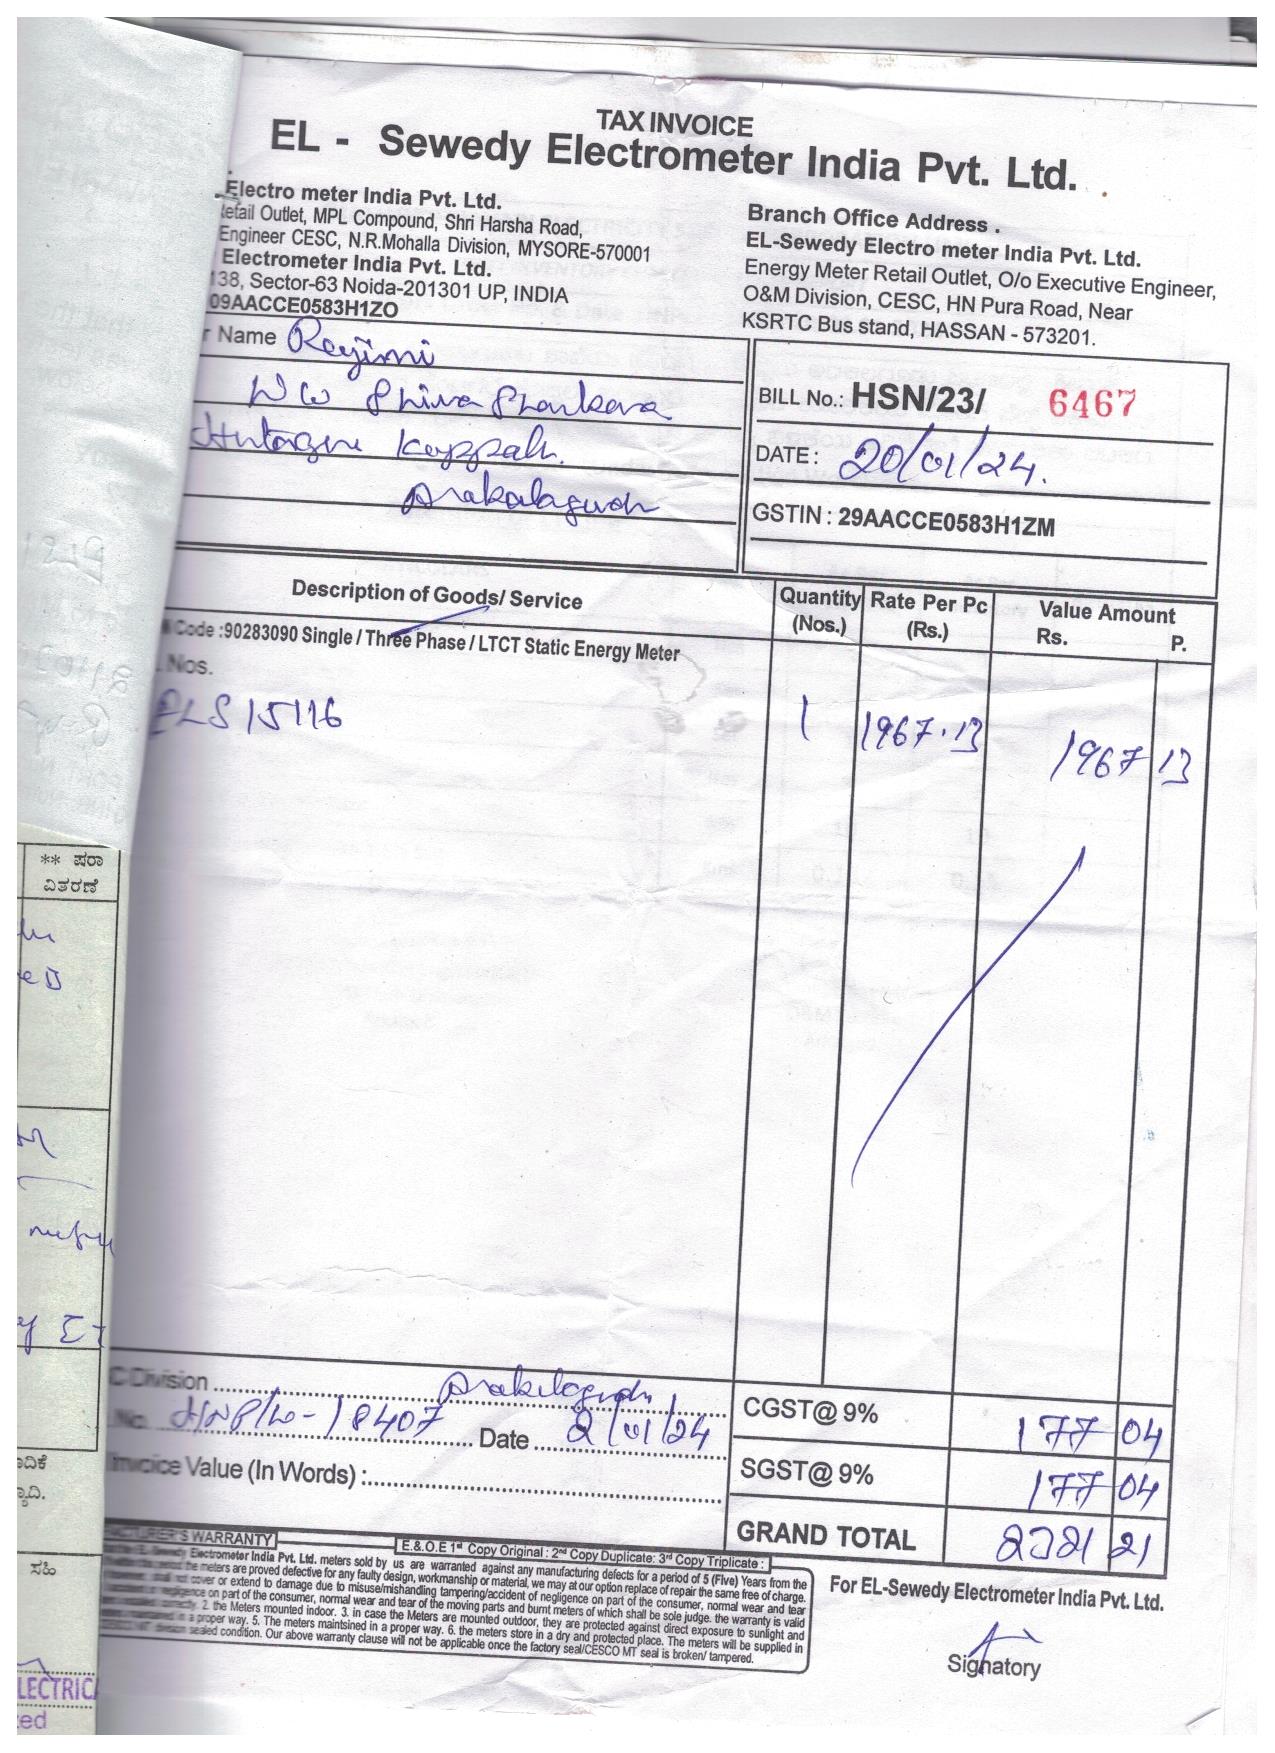 TAX INVOICE
EL - Sewedy Electrometer India Pvt. Ltd.
Electro meter India Pvt. Ltd.
Retail Outlet, MPL Compound, Shri Harsha Road,
Engineer CESC, N.R.Mohalla Division, MYSORE-570001
Electrometer India Pvt. Ltd.
138, Sector-63 Noida-201301 UP, INDIA
09AACCE0583H1ZO
Branch Office Address .
EL-Sewedy Electro meter India Pvt. Ltd.
Energy Meter Retail Outlet, O/o Executive Engineer,
O&M Division, CESC, HN Pura Road, Near
KSRTC Bus stand, HASSAN - 573201.
r Name
W/o Shiva Shankara
Arakalagudu
BILL No.: HSN/23/ 6467
DATE : 20/01/24.
GSTIN : 29AACCE0583H1ZM
Description of Goods/ Service Quantity (Nos.) Rate Per Pc (Rs.) Value Amount Rs. P.
Code :90283090 Single / Three Phase / LTCT Static Energy Meter
Nos.
ELS15116 1 1967.13 1967 13
C Division Arakalagudu
No. HNP/W-18407 Date 2/01/24
Invoice Value (In Words) :
CGST@ 9% 177 04
SGST@ 9% 177 04
GRAND TOTAL 2321 21
WARRANTY E.& O.E 1st Copy Original : 2nd Copy Duplicate: 3rd Copy Triplicate :
Electrometer India Pvt. Ltd. meters sold by us are warranted against any manufacturing defects for a period of 5 (Five) Years from the
the meters are proved defective for any faulty design, workmanship or material, we may at our option replace of repair the same free of charge.
cover or extend to damage due to misuse/mishandling tampering/accident of negligence on part of the consumer, normal wear and tear
negligence on part of the consumer, normal wear and tear of the moving parts and burnt meters of which shall be sole judge. the warranty is valid
2. the Meters mounted indoor. 3. in case the Meters are mounted outdoor, they are protected against direct exposure to sunlight and
in a proper way. 5. The meters maintsined in a proper way. 6. the meters store in a dry and protected place. The meters will be supplied in
sealed condition. Our above warranty clause will not be applicable once the factory seal/CESCO MT seal is broken/ tampered.
For EL-Sewedy Electrometer India Pvt. Ltd.
Signatory
** ಷರಾ
ವಿತರಣೆ
ಸಹಿ